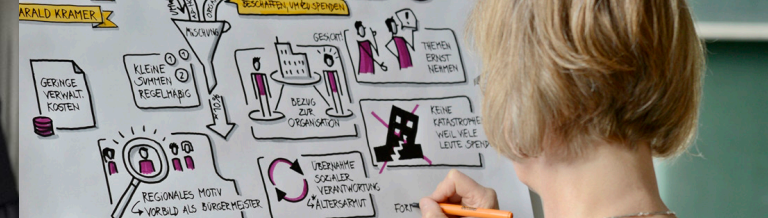 ARALD KRAMER
BESCHAFFEN, UM ZU SPENDEN
MISCHUNG
GERINGE
VERWALT.
KOSTEN
KLEINE
SUMMEN
REGELMÄßIG
1
2
GESICHT!
BEZUG
ZUR
ORGANISATION
THEMEN
ERNST
NEHMEN
KEINE
KATASTROPHE
WEIL VIELE
LEUTE SPEND
REGIONALES MOTIV
↳ VORBILD ALS BÜRGERMEISTER
ÜBERNAHME
SOZIALER
VERANTWORTUNG
↳ ALTERSARMUT